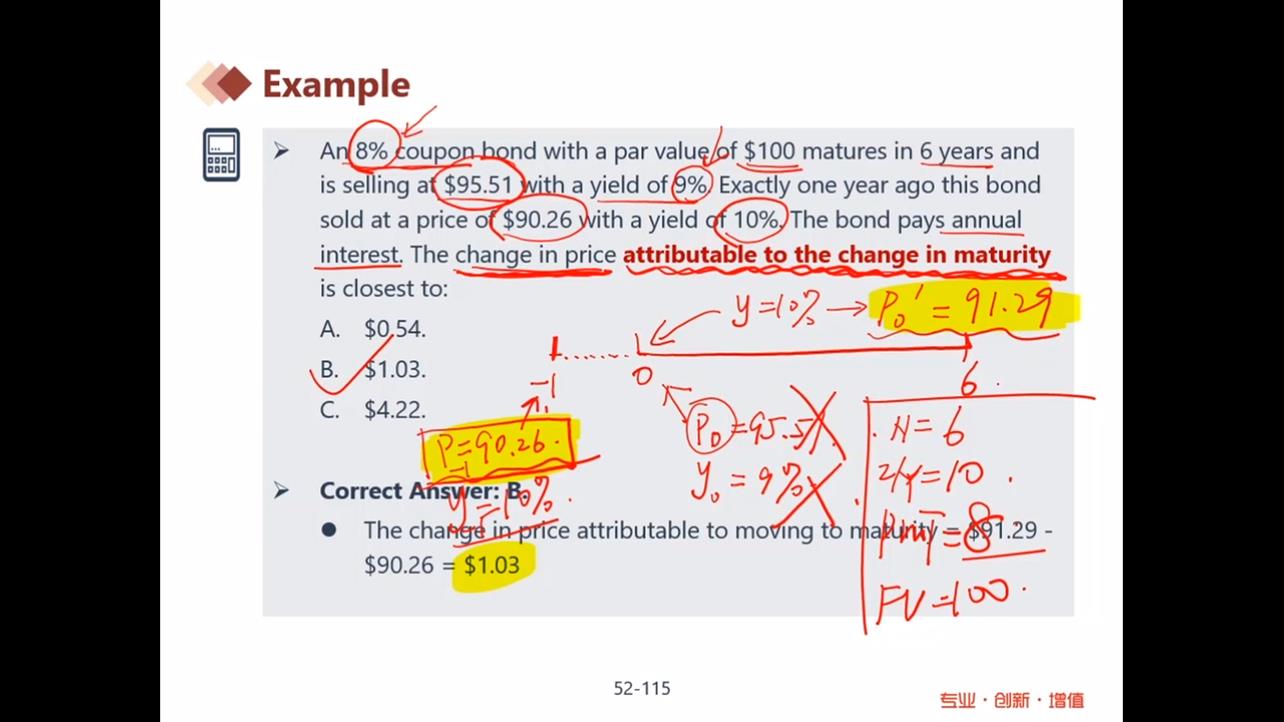 Example
An 8% coupon bond with a par value of $100 matures in 6 years and
is selling at $95.51 with a yield of 9%. Exactly one year ago this bond
sold at a price of $90.26 with a yield of 10%. The bond pays annual
interest. The change in price attributable to the change in maturity
is closest to:
y=10% → P₀' = 91.29
A. $0.54.
B. $1.03.
C. $4.22.
-1 0 6
P₋₁=90.26
P₀=95.51
N=6
y₀=9%
I/Y=10
Correct Answer: B.
y₋₁=10%
PMT=8
The change in price attributable to moving to maturity = $91.29 -
$90.26 = $1.03
FV=100
52-115
专业·创新·增值